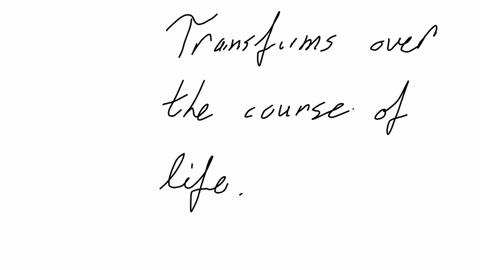 Transforms over
the course of
life.